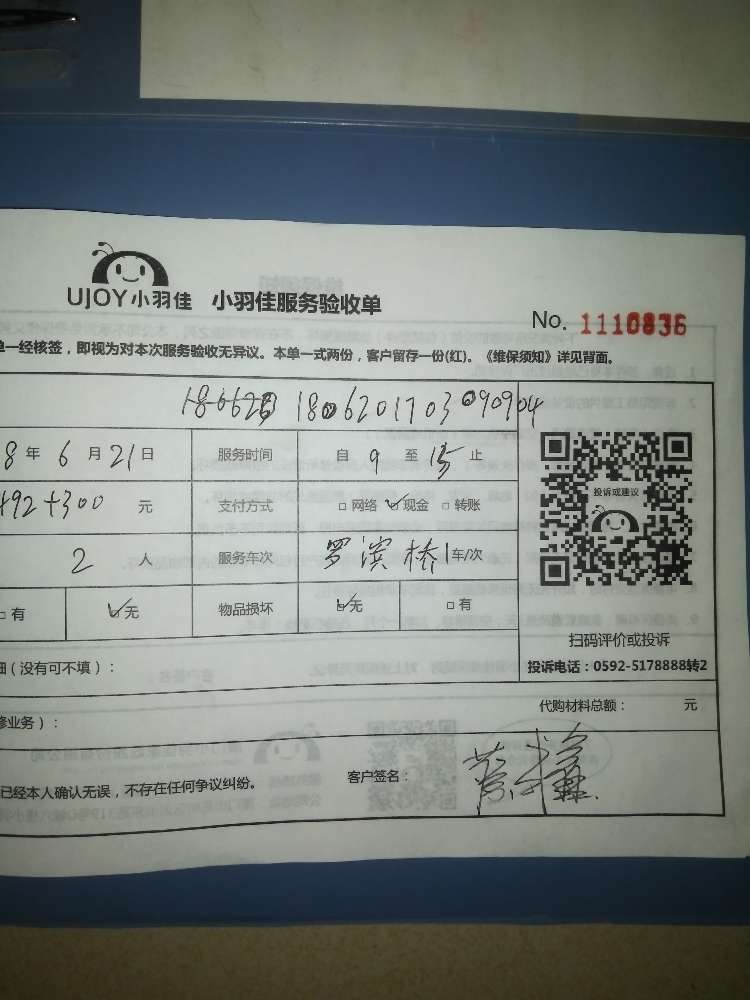 UJOY小羽佳 小羽佳服务验收单
No. 1110836
单一经核签，即视为对本次服务验收无异议。本单一式两份，客户留存一份(红)。《维保须知》详见背面。
1806201703090904
8 年 6 月 21 日 服务时间 自 9 至 止
492+300 元 支付方式 □ 网络 ☑ 现金 □ 转账
投诉或建议
2 人 服务车次 罗滨桥 1 车/次
□ 有 ☑ 无 物品损坏 ☑ 无 □ 有
扫码评价或投诉
细（没有可不填）：
投诉电话：0592-5178888转2
代购材料总额： 元
修业务）：
已经本人确认无误，不存在任何争议纠纷。 客户签名：